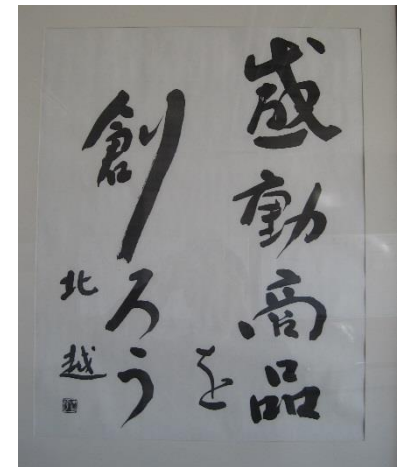 感動商品を
創ろう
北越